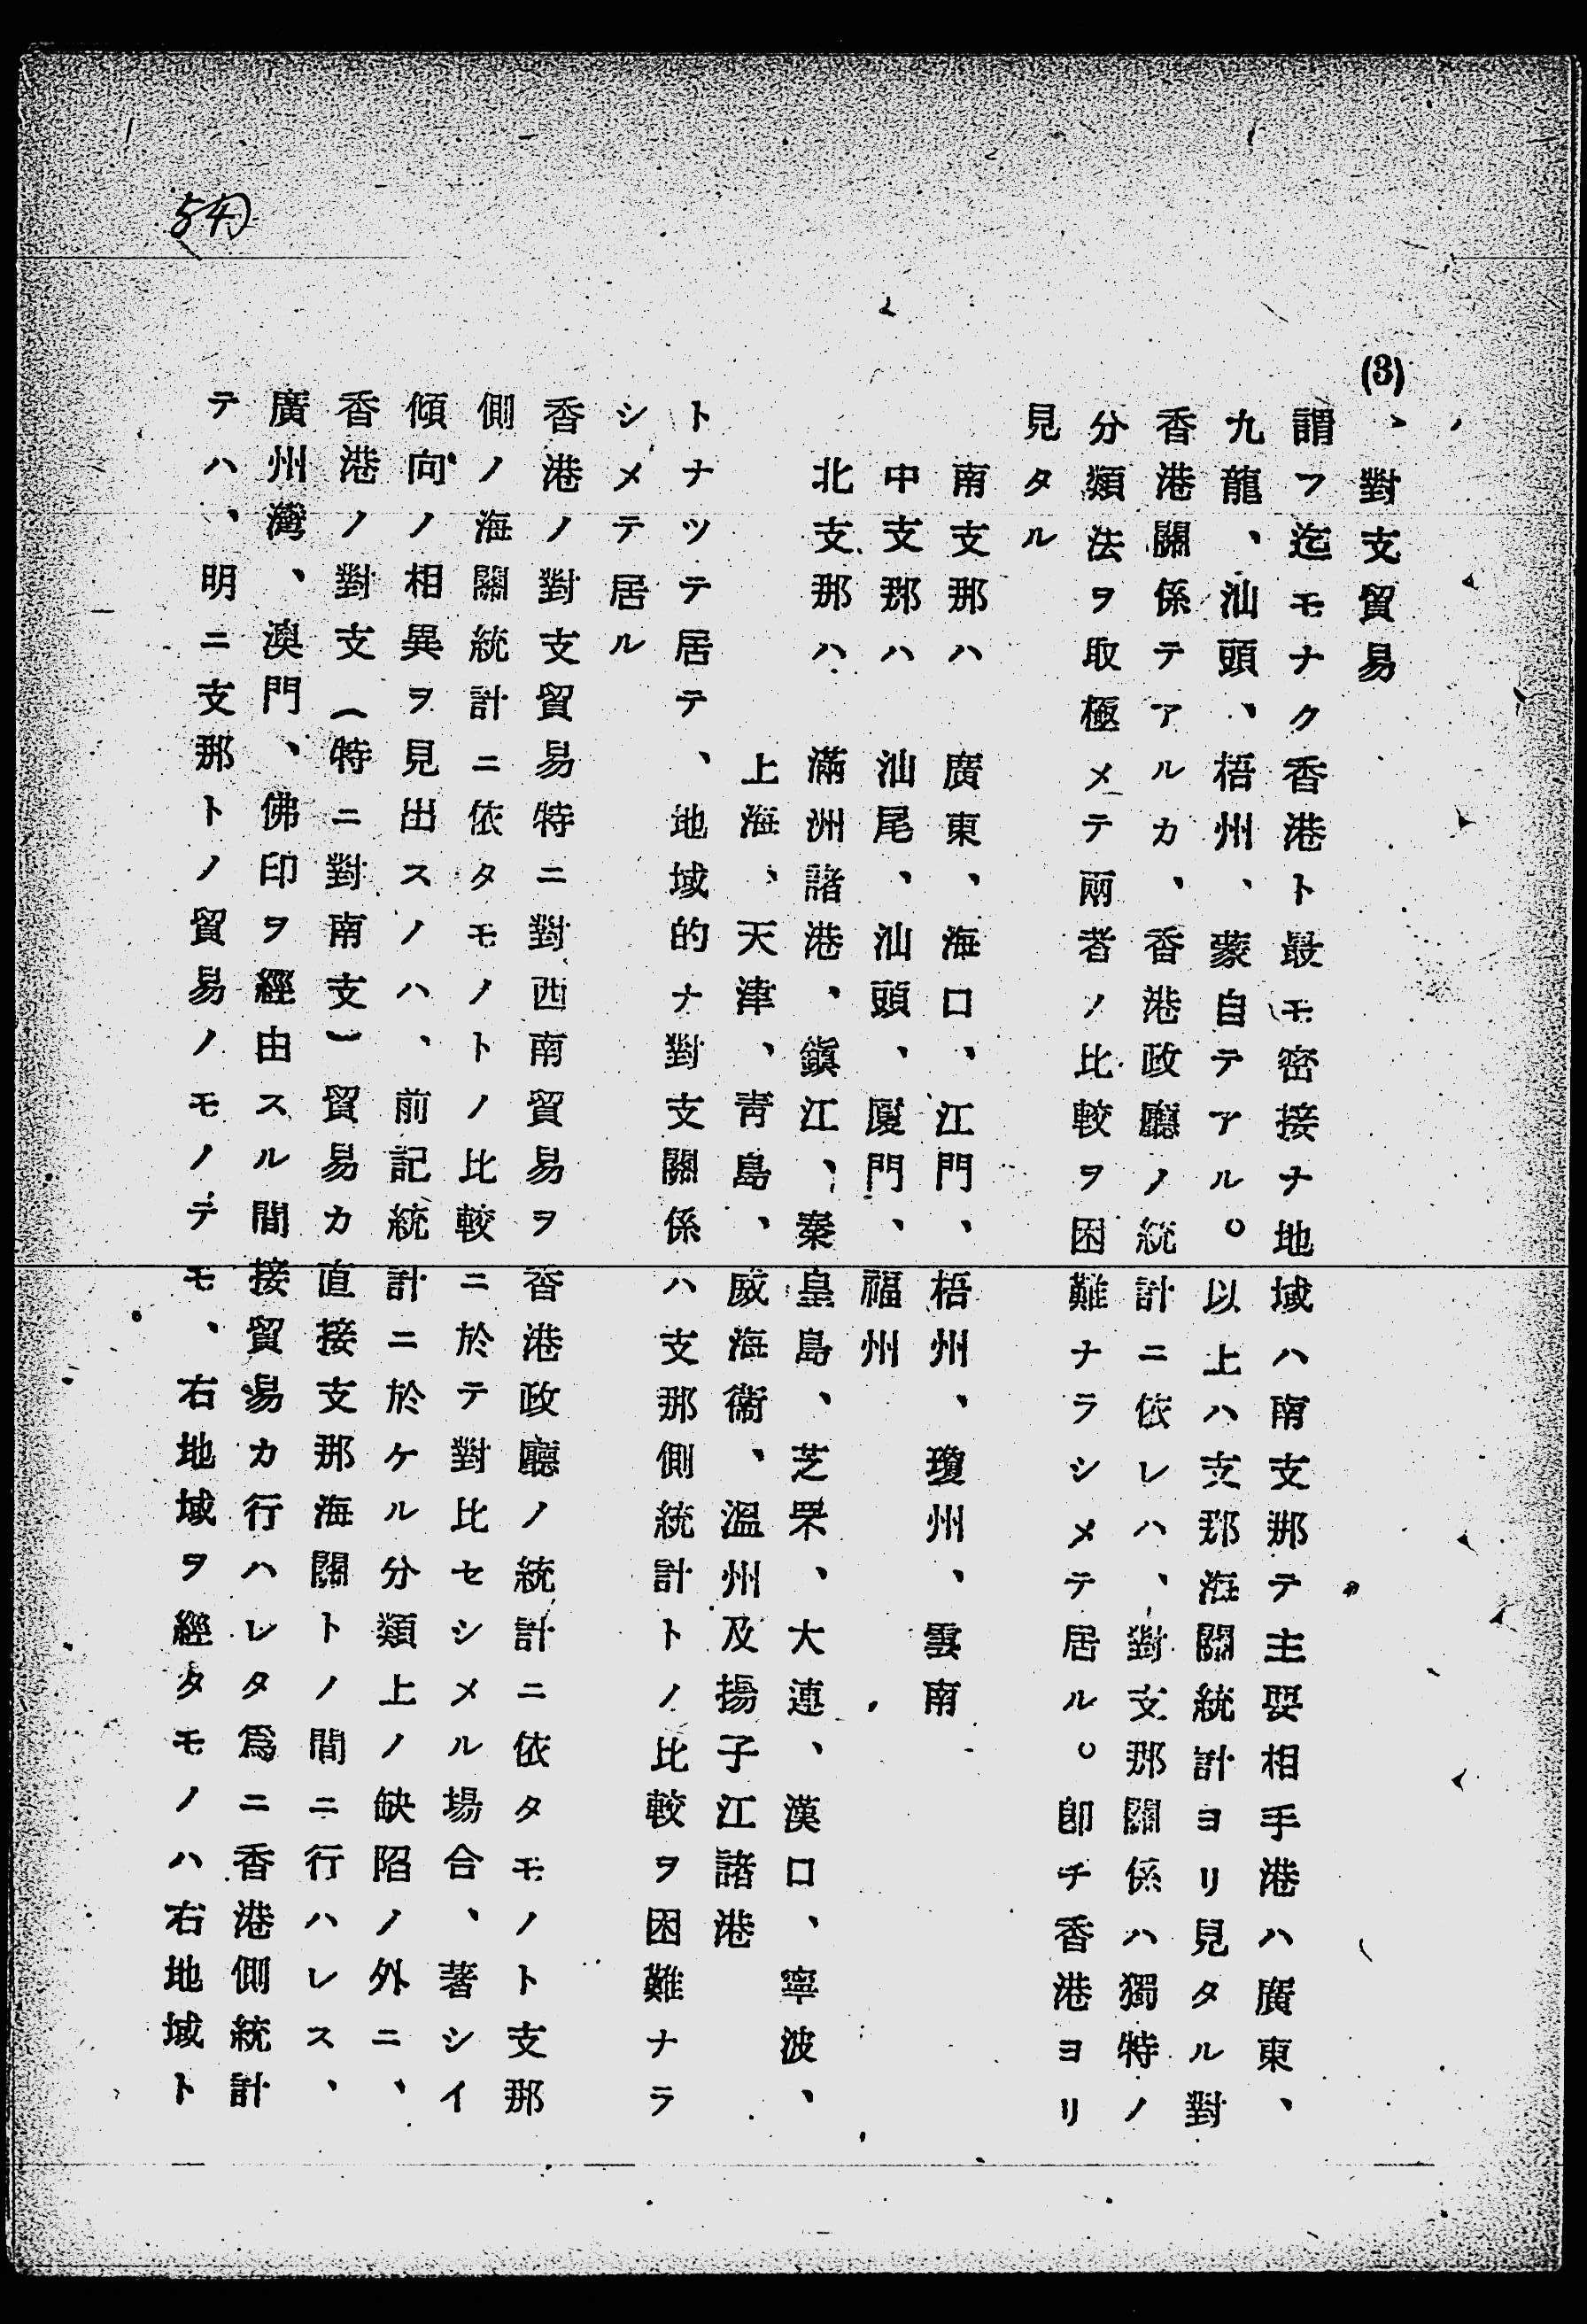 (3)、對支貿易
謂フ迄モナク香港ト最モ密接ナ地域ハ南支那テ主要相手港ハ廣東、
九龍、汕頭、梧州、蒙自テアル。以上ハ支那海關統計ヨリ見タル對
香港關係テアルカ、香港政廳ノ統計ニ依レハ、對支那關係ハ獨特ノ
分類法ヲ取極メテ兩者ノ比較ヲ困難ナラシメテ居ル。卽チ香港ヨリ
見タル
南支那ハ 廣東、海口、江門、梧州、瓊州、雲南
中支那ハ 汕尾、汕頭、廈門、福州
北支那ハ 滿洲諸港、鎭江、秦皇島、芝罘、大連、漢口、寧波、
上海、天津、靑島、威海衞、溫州及揚子江諸港
トナツテ居テ、地域的ナ對支關係ハ支那側統計トノ比較ヲ困難ナラ
シメテ居ル
香港ノ對支貿易特ニ對西南貿易ヲ香港政廳ノ統計ニ依タモノト支那
側ノ海關統計ニ依タモノトノ比較ニ於テ對比セシメル場合、著シイ
傾向ノ相異ヲ見出スノハ、前記統計ニ於ケル分類上ノ缺陷ノ外ニ、
香港ノ對支(特ニ對南支)貿易カ直接支那海關トノ間ニ行ハレス、
廣州灣、澳門、佛印ヲ經由スル間接貿易カ行ハレタ爲ニ香港側統計
テハ、明ニ支那トノ貿易ノモノテモ、右地域ヲ經タモノハ右地域ト